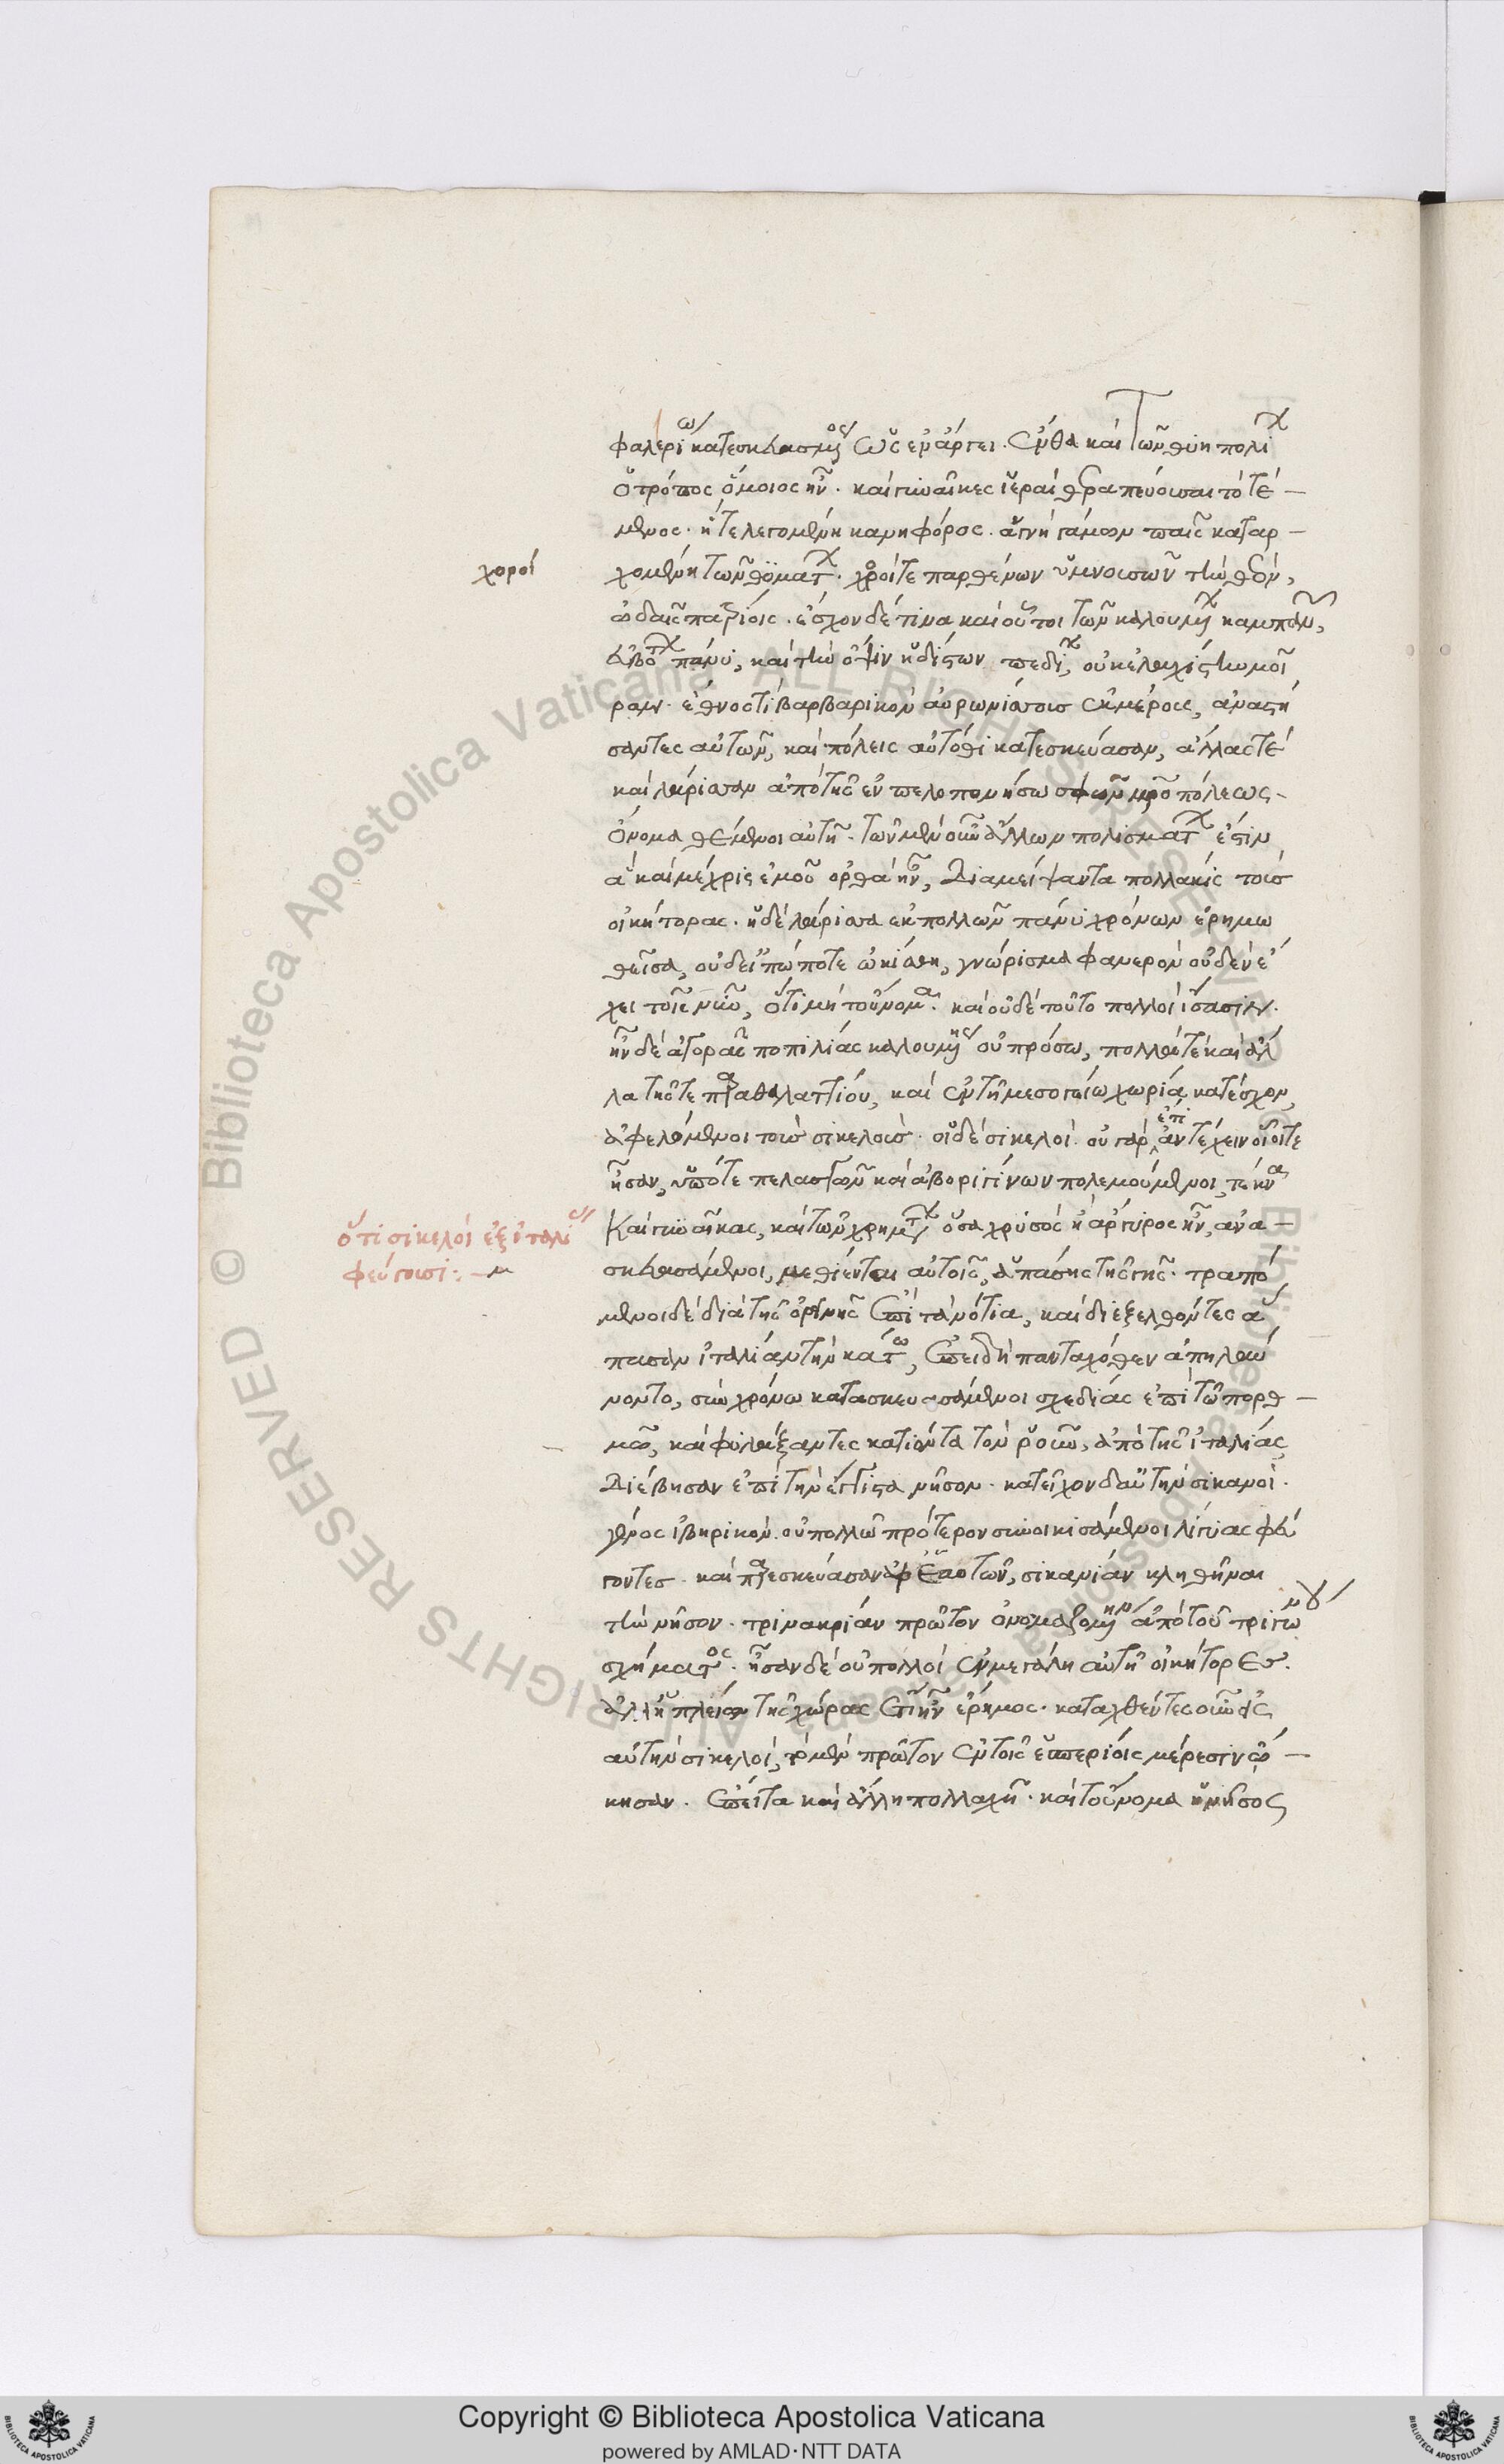 φαλερίω κατεσκευασμένος ὡς ἐν ἄργει. ἔνθα καὶ τῶν θυηπολιῶν
ὁ τρόπος ὅμοιος ἦν. καὶ γυναῖκες ἱεραὶ θεραπεύουσαι τὸ τέ-
μενος. ἥτε λεγομένη κανηφόρος. ἁγνὴ γάμων παῖς καταρ-
χοροί
χομένη τῶν θυμάτων. χοροίτε παρθένων ὑμνουσῶν τὴν θεόν,
ὠδαῖς πατρίοις. ἔσχον δέ τινα καὶ οὗτοι τῶν καλουμένων καμπανῶν,
εὐβότων πάνυ, καὶ τὴν ὄψιν ἡδίστων πεδίων, οὐκ ἐλαχίστην μοῖ
ραν. ἔθνος τι βαρβαρικὸν αὐρωνίσσους ἐκ μέρους, ἀναστή
σαντες αὐτῶν, καὶ πόλεις αὐτόθι κατεσκεύασαν, ἄλλας τέ
καὶ λάρισσαν ἀπὸ τῆς ἐν πελοποννήσω σφῶν μητροπόλεως-
ὄνομα θέμενοι αὐτῆ. τῶν μὲν οὖν ἄλλων πολισμάτων ἔστιν
ἃ καὶ μέχρις ἐμοῦ ὀρθὰ ἦν, διαμείψαντα πολλάκις τοὺς
οἰκήτορας. ἡ δὲ λάρισσα ἐκ πολλῶν πάνυ χρόνων ἐρημω
θεῖσα, οὐδ' εἰ πώποτε ὠκίσθη, γνώρισμα φανερὸν οὐδὲν ἔ
χει τοῖς νῦν, ὅτι μὴ τοὔνομα. καὶ οὐδὲ τοῦτο πολλοὶ ἴσασιν.
ἦν δὲ ἀγορᾶς ποπιλίας καλουμένης οὐ πρόσω, πολλὰ τὲ καὶ ἄλ
λα τῆς τε παραθαλαττίου, καὶ ἐν τῆ μεσογείω χωρία κατέσχον,
ἀφελόμενοι τοὺς σικελούς. οἱ δὲ σικελοὶ οὐ γὰρ ἐπὶ ἀντέχειν οἷοίτε
ἦσαν, ὑπότε πελασγῶν καὶ ἀβοριγίνων πολεμούμενοι, τέκνα
καὶ γυναῖκας, καὶ τῶν χρημάτων ὅσα χρυσὸς ἢ ἄργυρος ἦν, ἀνα-
ὅτι σικελοὶ ἐξ ἰταλίας
φεύγουσι:-
σκευασάμενοι, μεθίενται αὐτοῖς, ἁπάσης τῆς γῆς. τραπό
μενοι δὲ διὰ τῆς ὀρεινῆς ἐπὶ τὰ νότια, καὶ διεξελθόντες ἅ
πασαν ἰταλίαν τὴν κάτω, ἐπειδὴ πανταχόθεν ἀπηλαύ
νοντο, σὺν χρόνω κατασκευασάμενοι σχεδίας ἐπὶ τῶ πορθ-
μῶ, καὶ φυλάξαντες κατιόντα τὸν ῥοῦν, ἀπὸ τῆς ἰταλίας
διέβησαν ἐπὶ τὴν ἔγγιστα νῆσον. κατεῖχον δ' αὐτὴν σικανοὶ.
γένος ἰβηρικὸν οὐ πολλῶ πρότερον συνοικισάμενοι λίγυας φεύ
γοντες. καὶ παρεσκεύασαν ἀφ' ἑαυτῶν, σικανίαν κληθῆναι
τὴν νῆσον. τρινακρίαν πρῶτον ὀνομαζομένην ἀπὸ τοῦ τριγώνου
σχήματος. ἦσαν δὲ οὐ πολλοὶ ἐν μεγάλη αὐτῆ οἰκήτορες.
ἀλλ' ἡ πλείων τῆς χώρας ἔτι ἦν ἔρημος. καταχθέντες οὖν εἰς
αὐτὴν σικελοὶ, τὸ μὲν πρῶτον ἐν τοῖς ἑσπερίοις μέρεσιν ὤ-
κησαν. ἔπειτα καὶ ἄλλη πολλαχῆ. καὶ τοὔνομα ἡ νῆσος
Copyright © Biblioteca Apostolica Vaticana
powered by AMLAD·NTT DATA